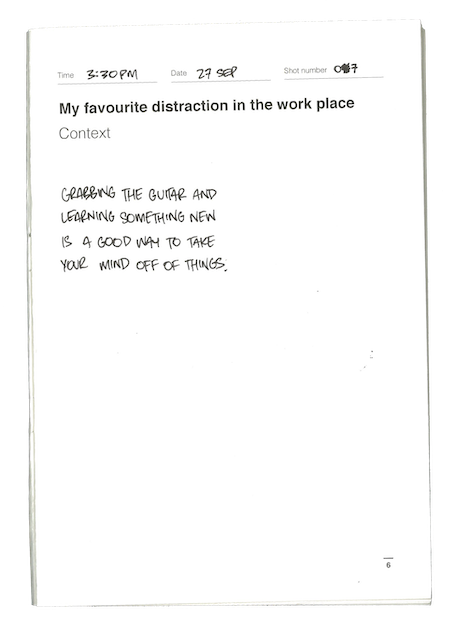 Time 3:30PM Date 27 SEP Shot number 07
My favourite distraction in the work place
Context
GRABBING THE GUITAR AND
LEARNING SOMETHING NEW
IS A GOOD WAY TO TAKE
YOUR MIND OFF OF THINGS.
6